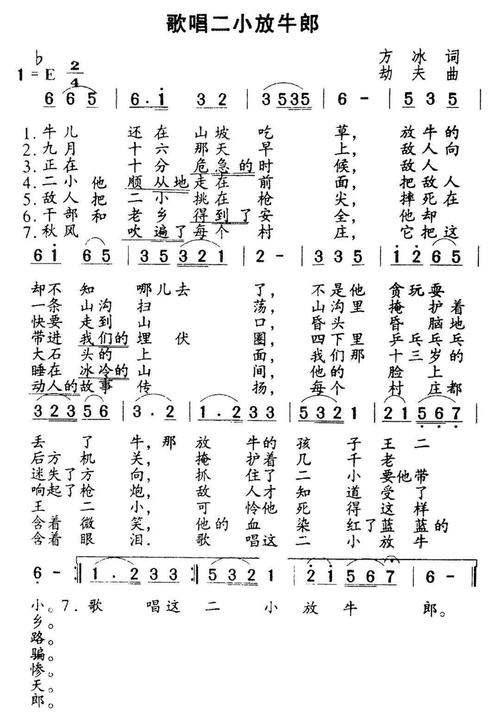 歌唱二小放牛郎
♭
1=E 2/4
方冰词
劫夫曲
6 65 | 6·1 32 | 3535 | 6 - | 535 |
1.牛儿 还在山坡吃 草,放牛的
2.九月 十六那天早 上,敌人向
3.正在 十分危急的时 候,敌人
4.二小他 顺从地走在 前 面,把敌人
5.敌人把 二小挑在枪 尖,摔死在
6.干部和 老乡得到了安 全,他却
7.秋风 吹遍了每个村 庄,它把这
61 65 | 35 5321 | 2 - | 3·235 | 61 65 |
却不知 哪儿去 了,不是他 贪玩耍
一条山沟扫 荡,山沟里 掩护着
快要走到山 口,昏头 昏脑地
带进我们的埋伏 圈,四下里 乒乓乒乓
大石头的上 面,我们那 十三岁的
睡在冰冷的山 间,他的 脸上
动人的故事传 扬,每个 村庄都
32356 | 3·2 | 1·233 | 5 5321 | 21567 |
丢了 牛,那放牛的孩子王二
后方机 关,掩护着几千老
迷失了方 向,抓住了二小要他带
响起了枪 炮,敌人才知道受了
王二 小,可怜他死得这样
含着微 笑,他的血染红了蓝蓝的
含着眼 泪。歌唱这二小放牛
6 - :‖ 1·233 | 5 5321 | 21567 | 6 - ‖
小。7.歌 唱这二小放牛 郎。
乡。
路。
骗。
惨。
天。
郎。